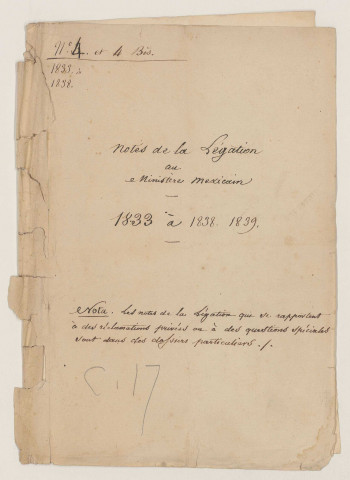 Nº 4. et 4 Bis.
1833 à
1838.
Notes de la Légation
au
Ministère Mexicain
1833 à 1838. 1839.
Nota. Les notes de la Légation que se rapportent
à des réclamations privées ou à des questions spéciales
sont dans des dossiers particuliers ./.
C. 17